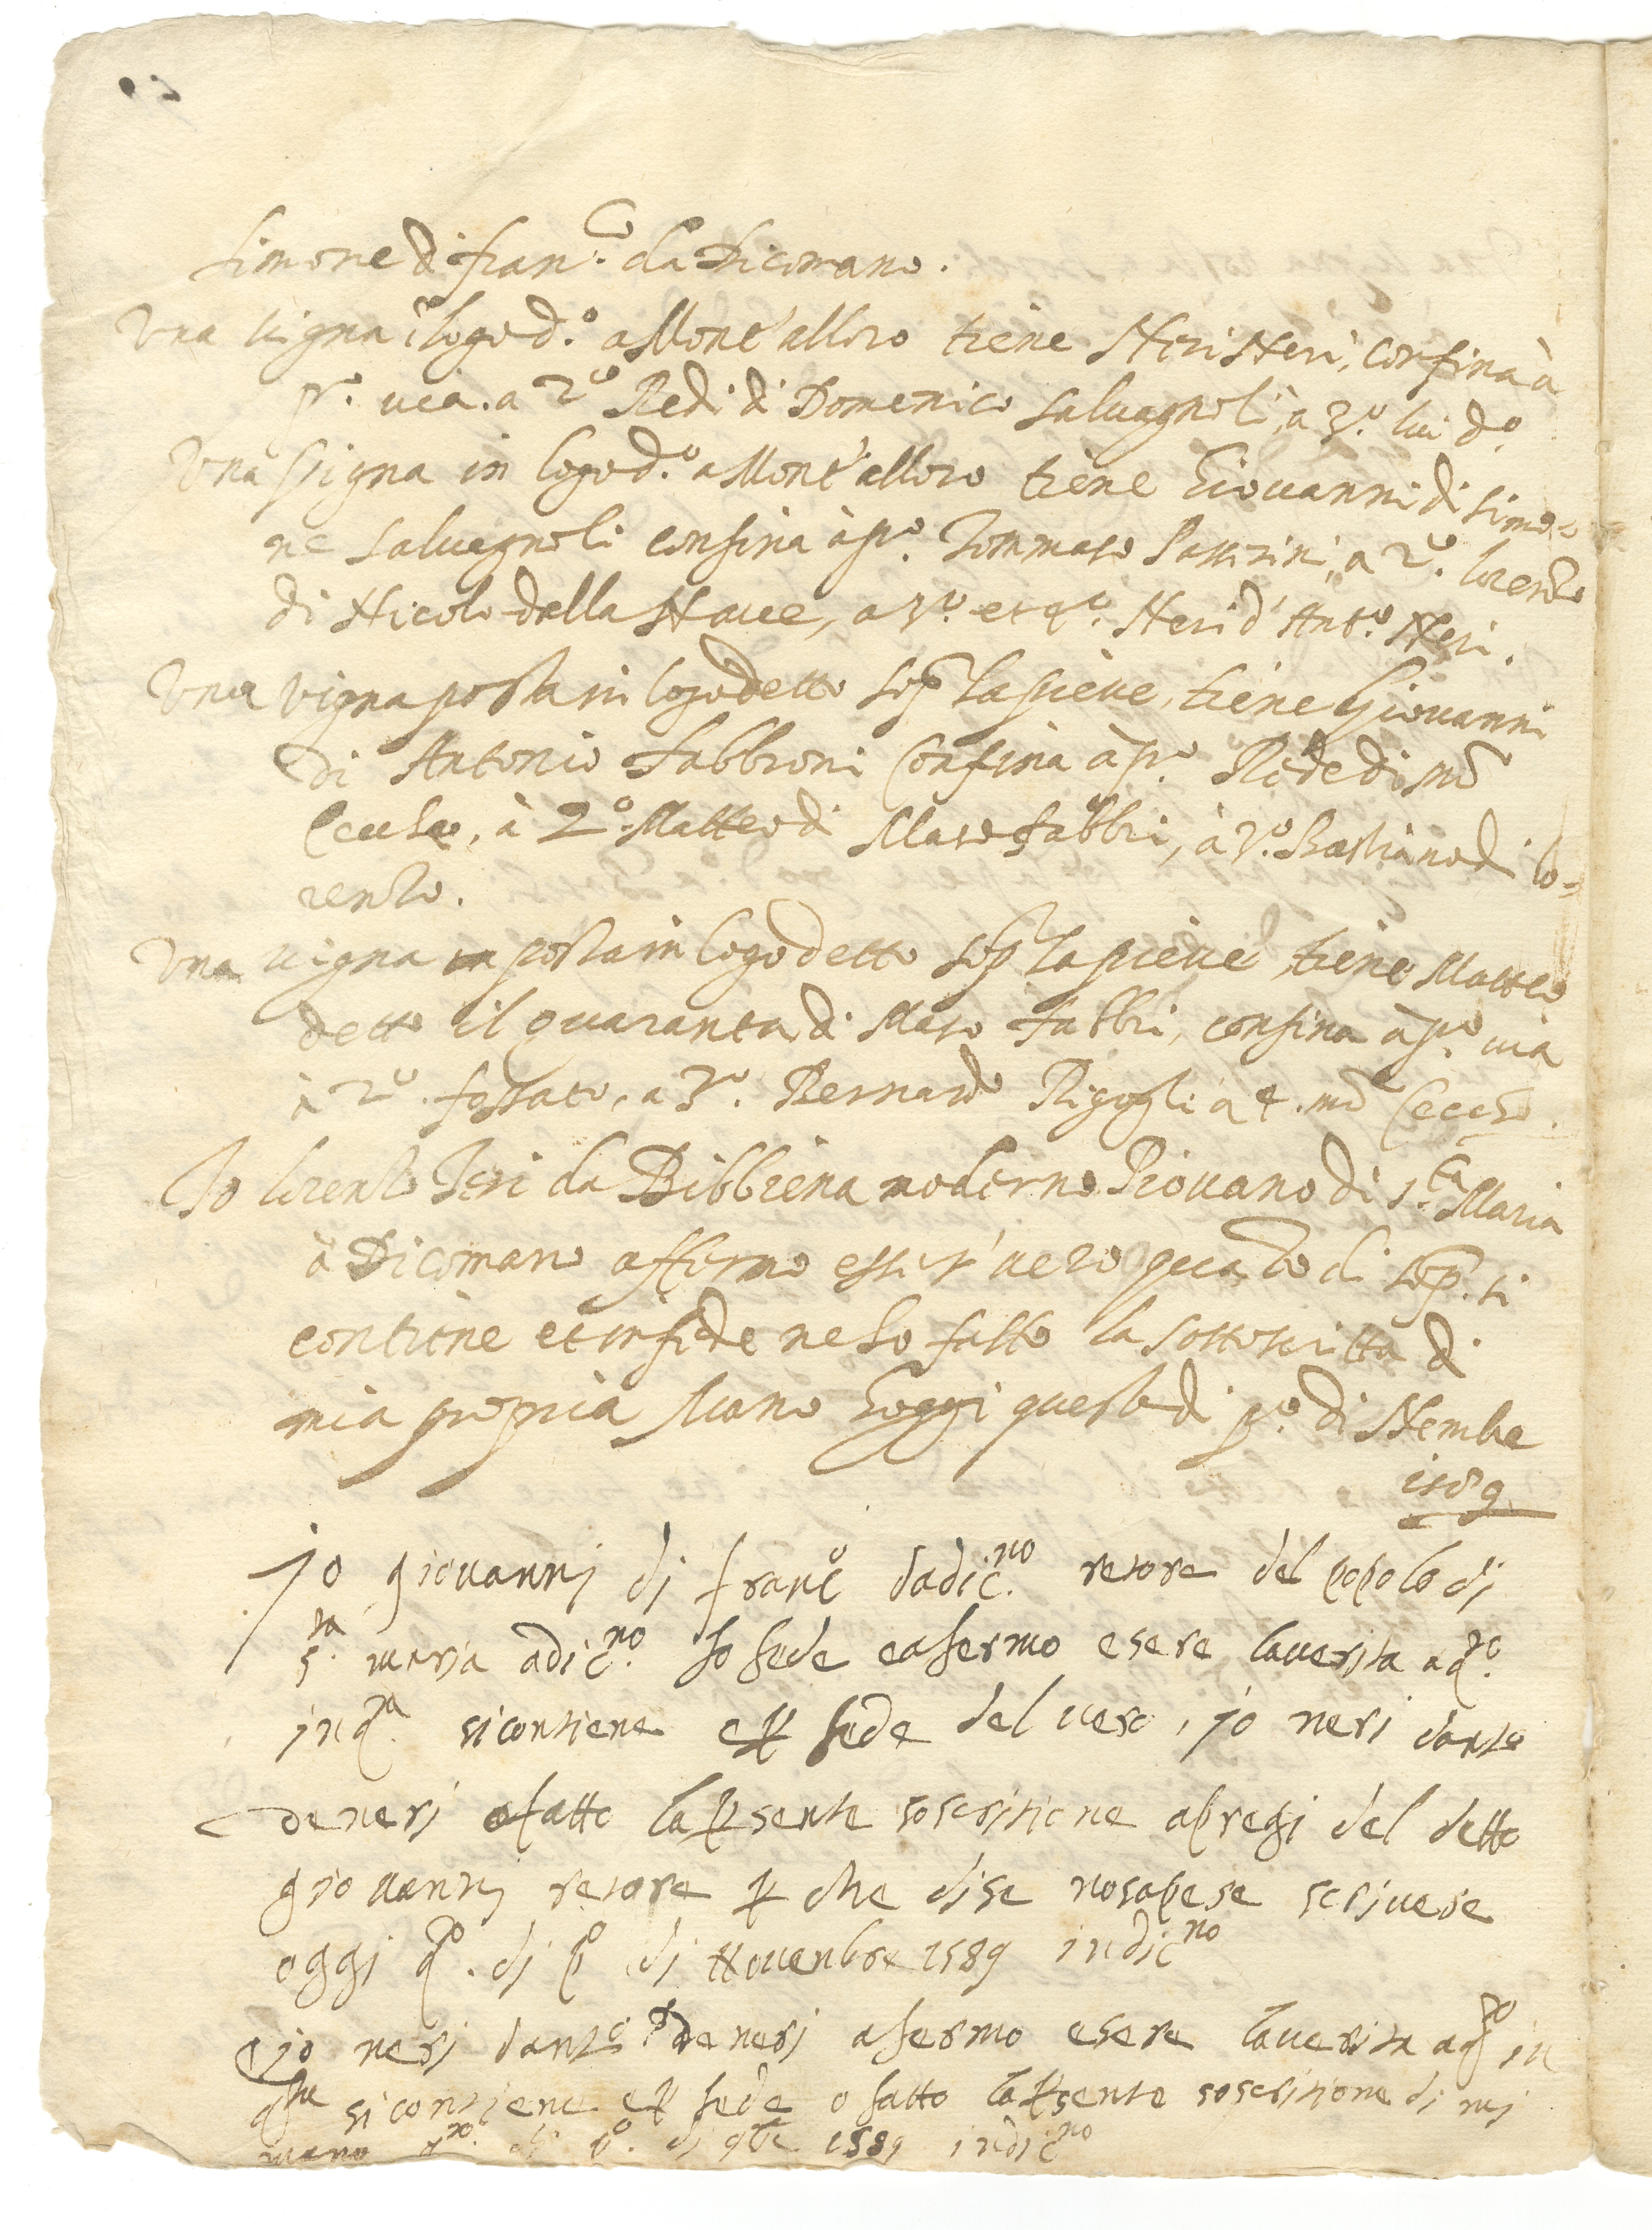 Simone di Fran.co da Dicomano.
Una vigna i logo d.o a Mont'alloro tiene Neri Neri, confina à
p.o via. a 2.o Redi di Domenico Salvagnoli, a 3.o lui d.o
Una vigna in logo d.o a Mont'alloro tiene Giovanni di Simo-
ne Salvagnoli confina à p.o Tommaso Passerini, a 2.o lorenzo
di Nicolo della Nave, a 3.o et 4.o Neri d'Ant.o Neri.
Una vigna posta in logo detto sop.a la pieve, tiene Giovanni
di Antonio Fabbroni Confina à p.o Rede di m.o
à 2.o Matteo di Maso Fabbri, à 3.o Bastiano di lo-
renzo.
Una vigna posta in logo detto sop.a la pieve, tiene Matteo
detto il quaranta di Maso Fabbri, confina à p.o via
à 2.o fossato, a 3.o Bernardo Rigogli a 4. m.o
Io lorenzo da Bibbiena moderno Piovano di S.ta Maria
à Dicomano affermo esser' vero quanto di sop.a si
contiene et in fede ne ho fatto la sottoscritta di
mia propria Mano hoggi questo di p.o di Nembre
1589
Jo giovannj di franc.o dadic.no retore del popolo dj
s.ta marja adic.no fo fede eafermo esere laverita aq.to
inq.ta sicontiene e p fede del vero, jo nerj danto
denerj ofatto lapsente soscritione apregi del detto
giovannj retore p che dise nosapese scrivere
oggi q.o dj p.o dj Novenbre 1589 indic.no
e jo nerj danto denerj afermo esere laverita aq.to in
q.ta sicontiene e p fede o fatto lapsente soscritione di mj
mano q.o dj p.o dj 9bre 1589 indic.no